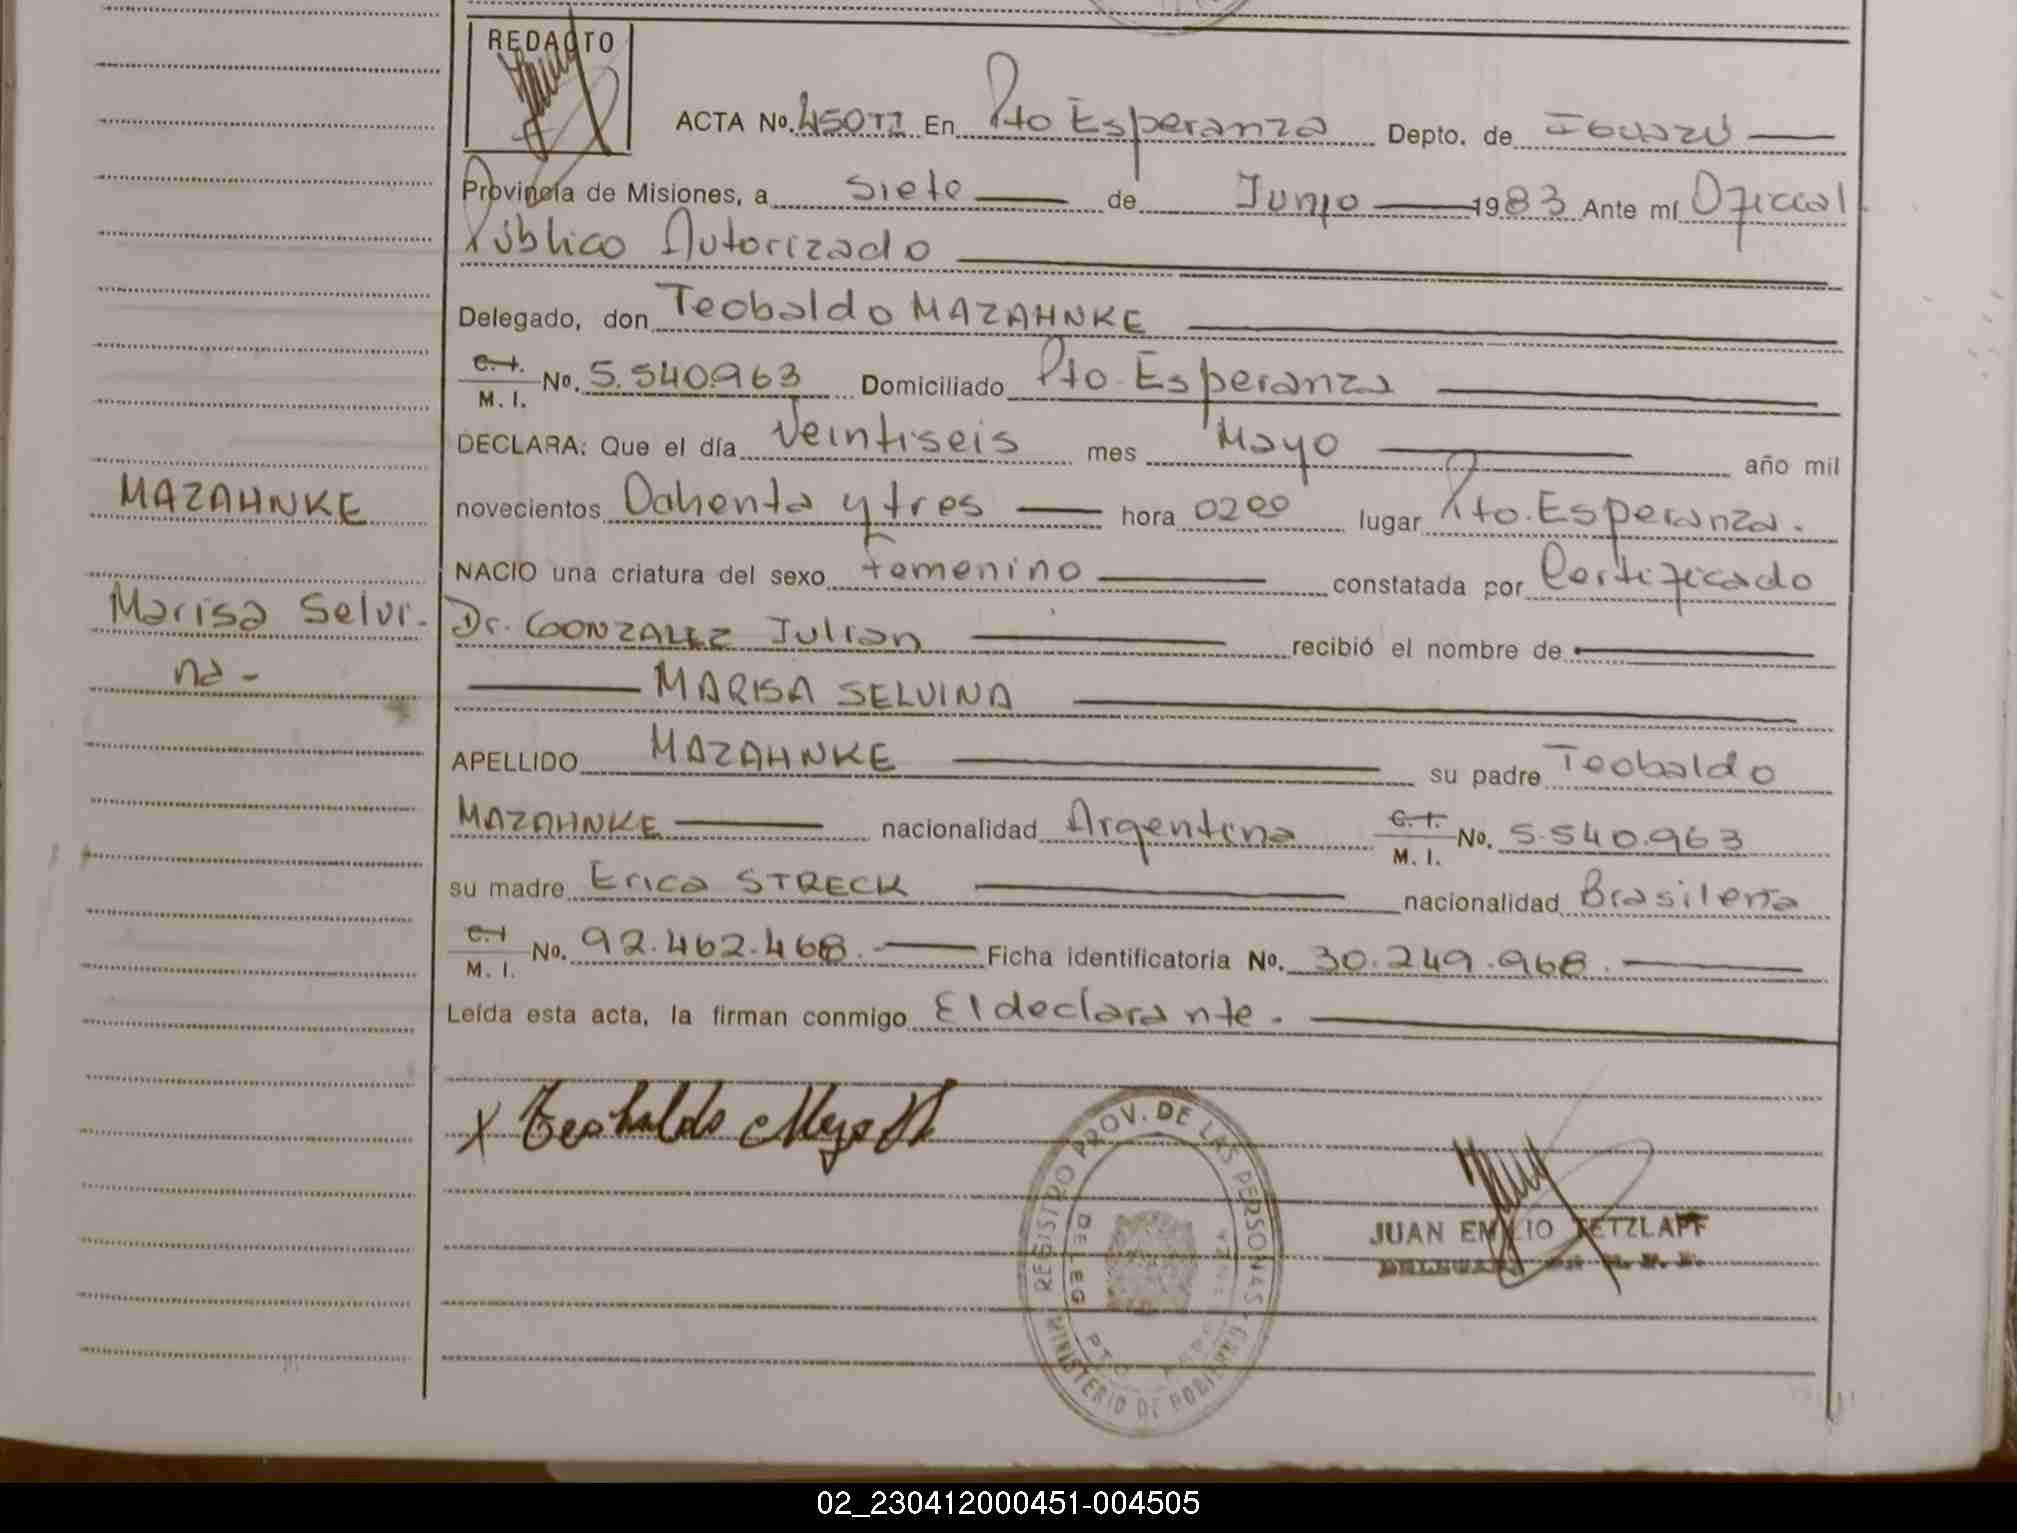 REDACTO
ACTA Nº. 450TI En Pto Esperanza Depto. de Iguazú
Provincia de Misiones, a siete de Junio 1983 Ante mí Oficial
Público Autorizado
Delegado, don Teobaldo MAZAHNKE
C.I. M.I. Nº. 5.540.963 Domiciliado Pto. Esperanza
DECLARA: Que el día Veintiseis mes Mayo año mil
MAZAHNKE
novecientos Ochenta y tres hora 0200 lugar Pto. Esperanza.
NACIO una criatura del sexo femenino constatada por Certificado
Marisa Selvi-
na-
Dr. GONZALEZ Julian recibió el nombre de
MARISA SELVINA
APELLIDO MAZAHNKE su padre Teobaldo
MAZAHNKE nacionalidad Argentina C.I. M.I. Nº. 5.540.963
su madre Erica STRECK nacionalidad Brasileña
C.I M.I. Nº. 92.462.468. Ficha identificatoria Nº. 30.249.968.
Leída esta acta, la firman conmigo El declarante.
X Teobaldo
REGISTRO PROV. DE LAS PERSONAS
MINISTERIO DE GOBIERNO
DELEG
PTO
JUAN EMILIO TETZLAFF
02_230412000451-004505